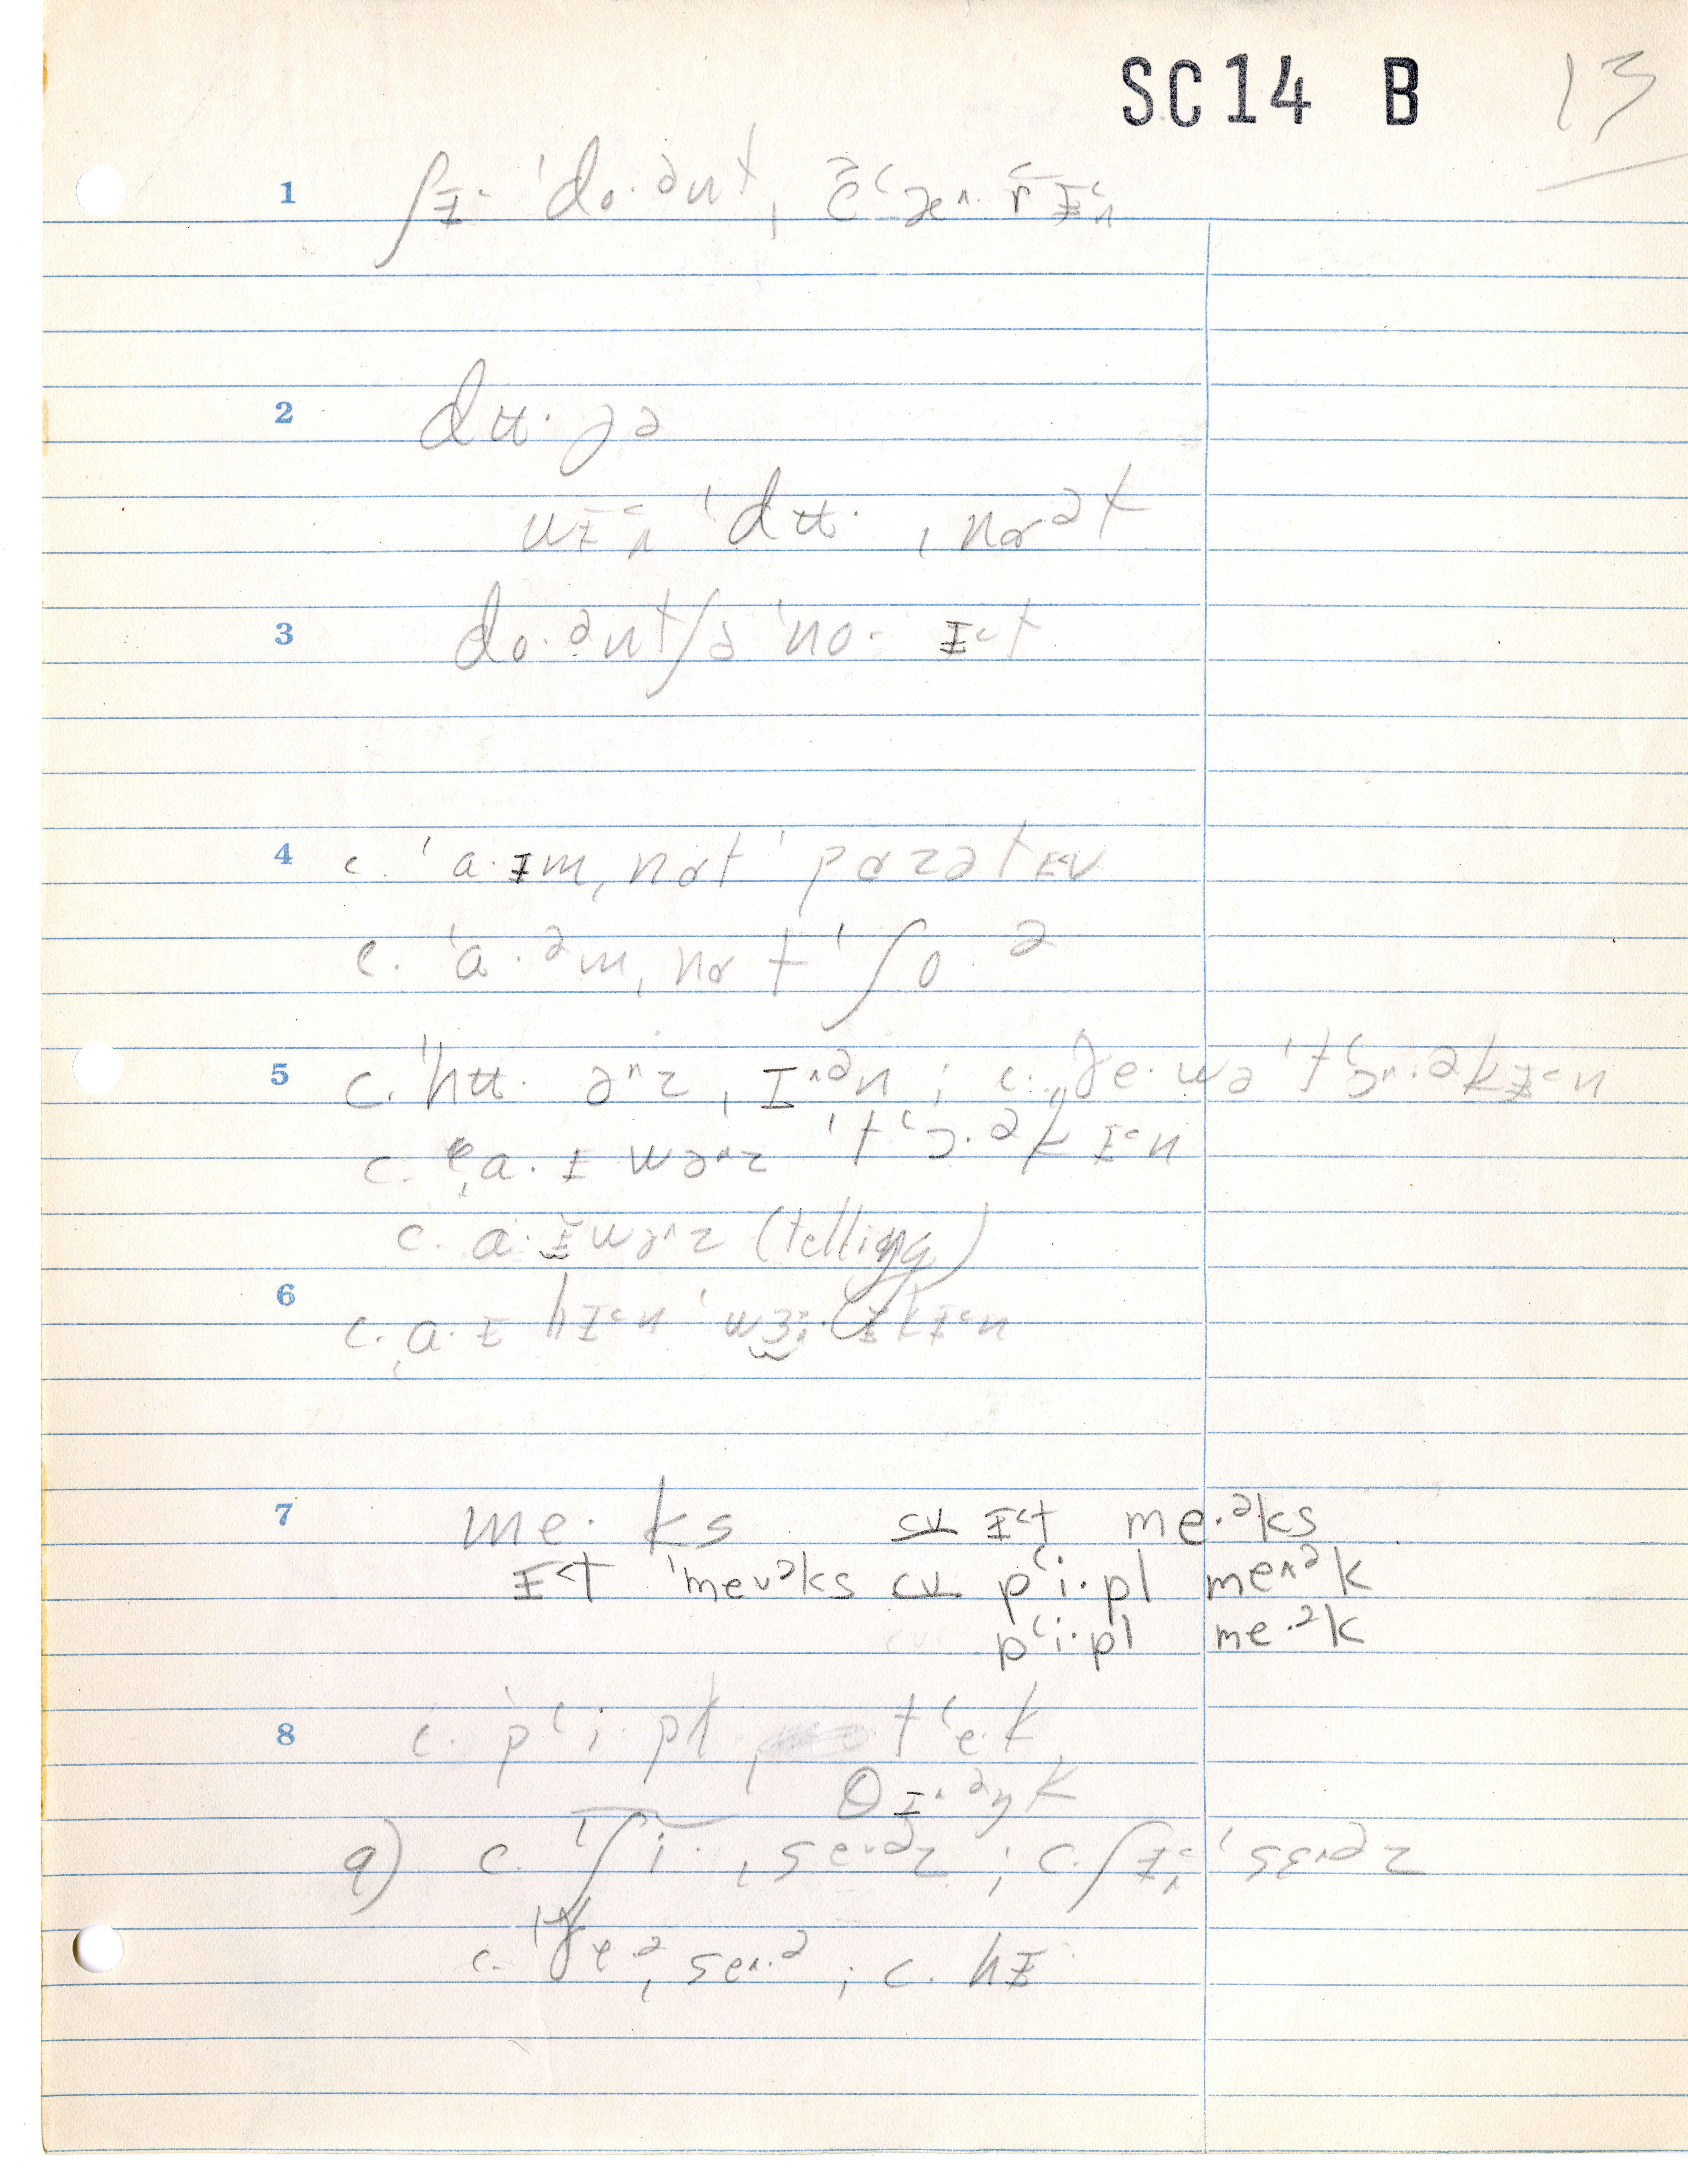 SC14 B 13
1 ʃɪ˂ ˈdo·ənt, č̄ʻæ˄ r̄ɪ˂˄
2 dʉ·ɟə
wɪ˂˄ ˈdʉ· ˌnɑət
3 do·ənt/ə ˈno· ɪ˂t
4 c. ˈa·ɪm, nɑt ˈpɑzətɪ˂v
c. ˈa·əm, nɑt ˈʃo·ə
5 c. ˈhʉ· ə˄z, ɪ˄ən ; c. ðe·wə ˈtʻɔ˄·əkɪ˂n
c. ˌa·ɪ wə˄z ˈtʻɔ·əkɪ˂n
c. a·ɪ̆wə˄z (telling)
6 c. ˌa·ɪ hɪ˂n
7 me·ks cv ɪ˂t me·əks
ɪ˂t ˈmeᵛəks cv pʻi·pl me˄ək
pʻi·pl me·ək
8 c. pʻi·pl, tʻe·k
θɪ˄·əŋk
9) c. ˈʃi· ˌseᵛəz ; c. ʃɪ˂˄ ˈsɛ˄əz
c. ˈðe·ə, se˄·ə ; c. hɪ·